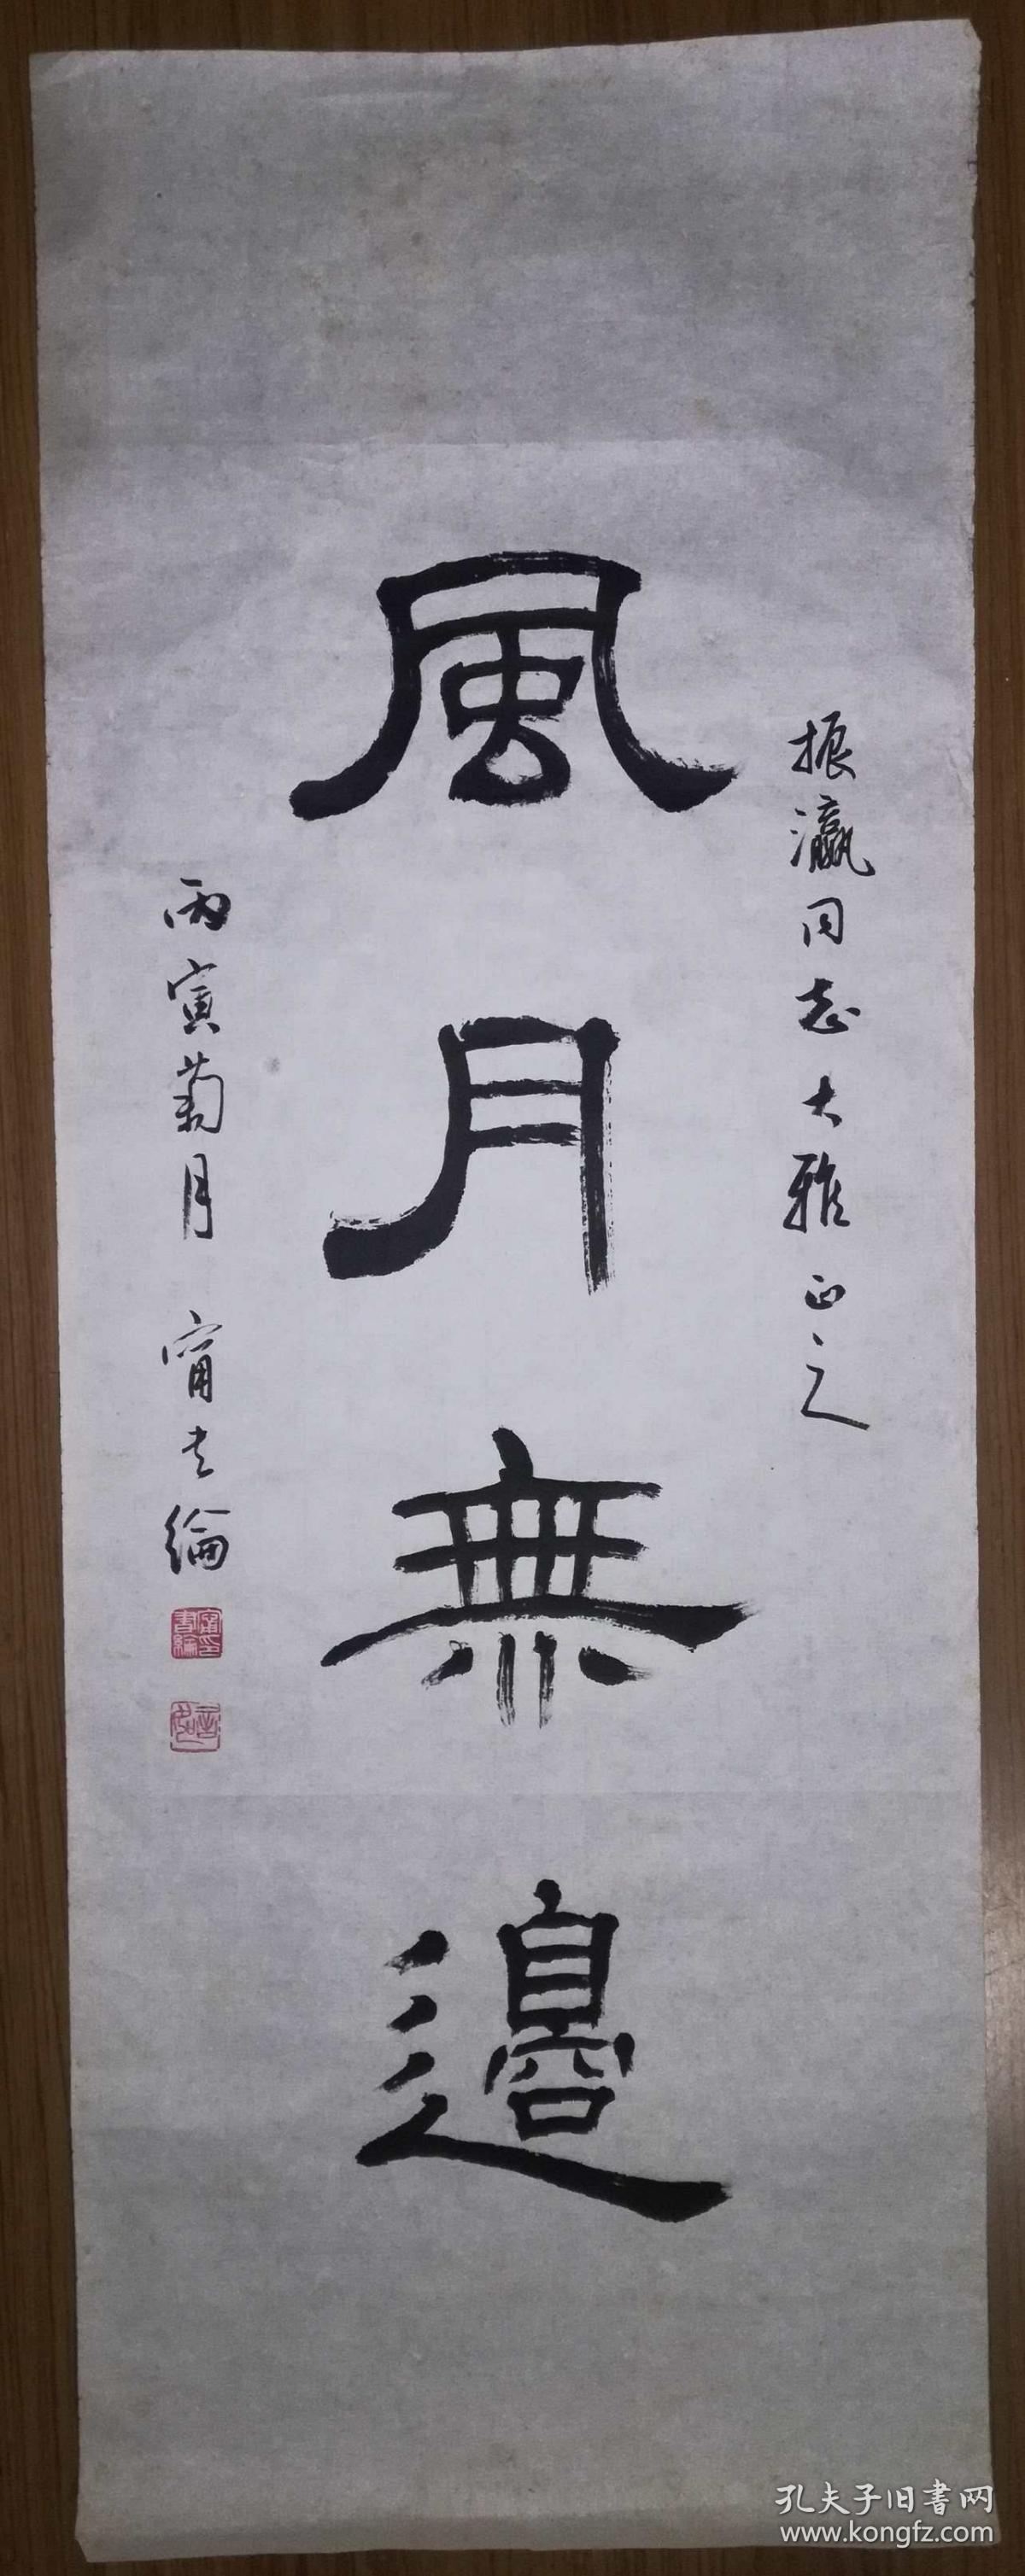 振瀛同志大雅正之
風月無邊
丙寅菊月 甯书綸
甯印书綸
孔夫子旧書网
www.kongfz.com